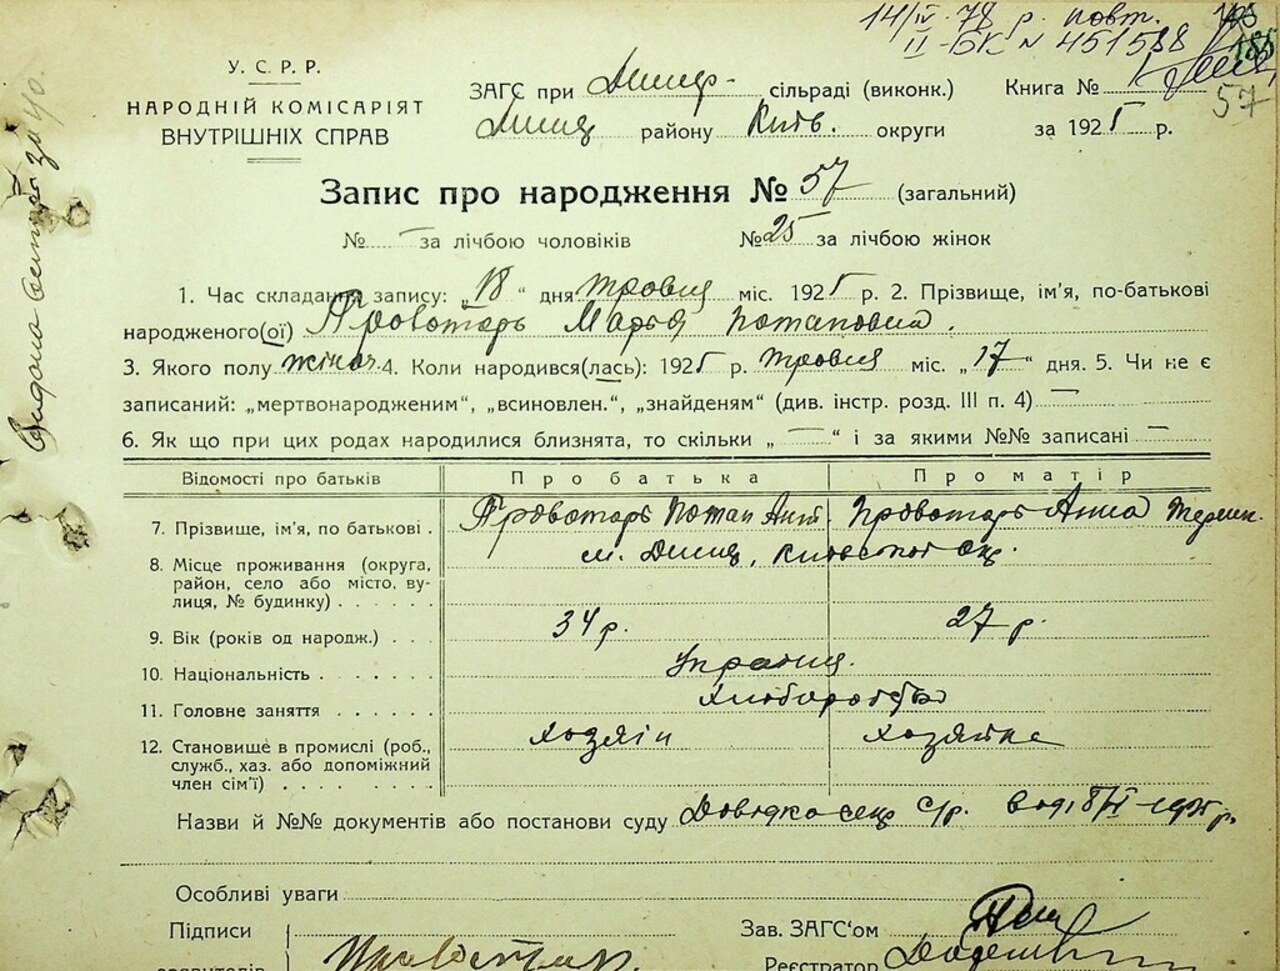 14/IV-78 р. повт.
II-БК № 451588
185
57
У. С. Р. Р.
НАРОДНІЙ КОМІСАРІЯТ
ВНУТРІШНІХ СПРАВ
ЗАГС при Димер- сільраді (виконк.) Книга №
Димер району Київ. округи за 1925 р.
Запис про народження № 57 (загальний)
№ — за лічбою чоловіків № 25 за лічбою жінок
1. Час складання запису: „18“ дня травня міс. 1925 р. 2. Прізвище, ім'я, по-батькові
народженого(ої) Провоторь Марья Потаповна.
3. Якого полу жіноч. 4. Коли народився(лась): 1925 р. травня міс. „17“ дня. 5. Чи не є
записаний: „мертвонародженим“, „всиновлен.“, „знайденям“ (див. інстр. розд. III п. 4) —
6. Як що при цих родах народилися близнята, то скільки „ — “ і за якими №№ записані —
Відомості про батьків Про батька Про матір
7. Прізвище, ім'я, по батькові . Провоторь Потап Ант. Провоторь Анна
8. Місце проживання (округа, м. Димер, Київської окр.
район, село або місто, ву-
лиця, № будинку) . . . . . .
9. Вік (років од народж.) . . . 34 р. 27 р.
10. Національність . . . . . . Україн.
11. Головне заняття . . . . . . Хліборобство
12. Становище в промислі (роб., хозяін хозяйка
служб., хаз. або допоміжний
член сім'ї) . . . . . . . .
Назви й №№ документів або постанови суду Довідка с/р. від 18/V-1925 р.
Особливі уваги
Підписи Зав. ЗАГС'ом
заявителів Провоторь Реєстратор